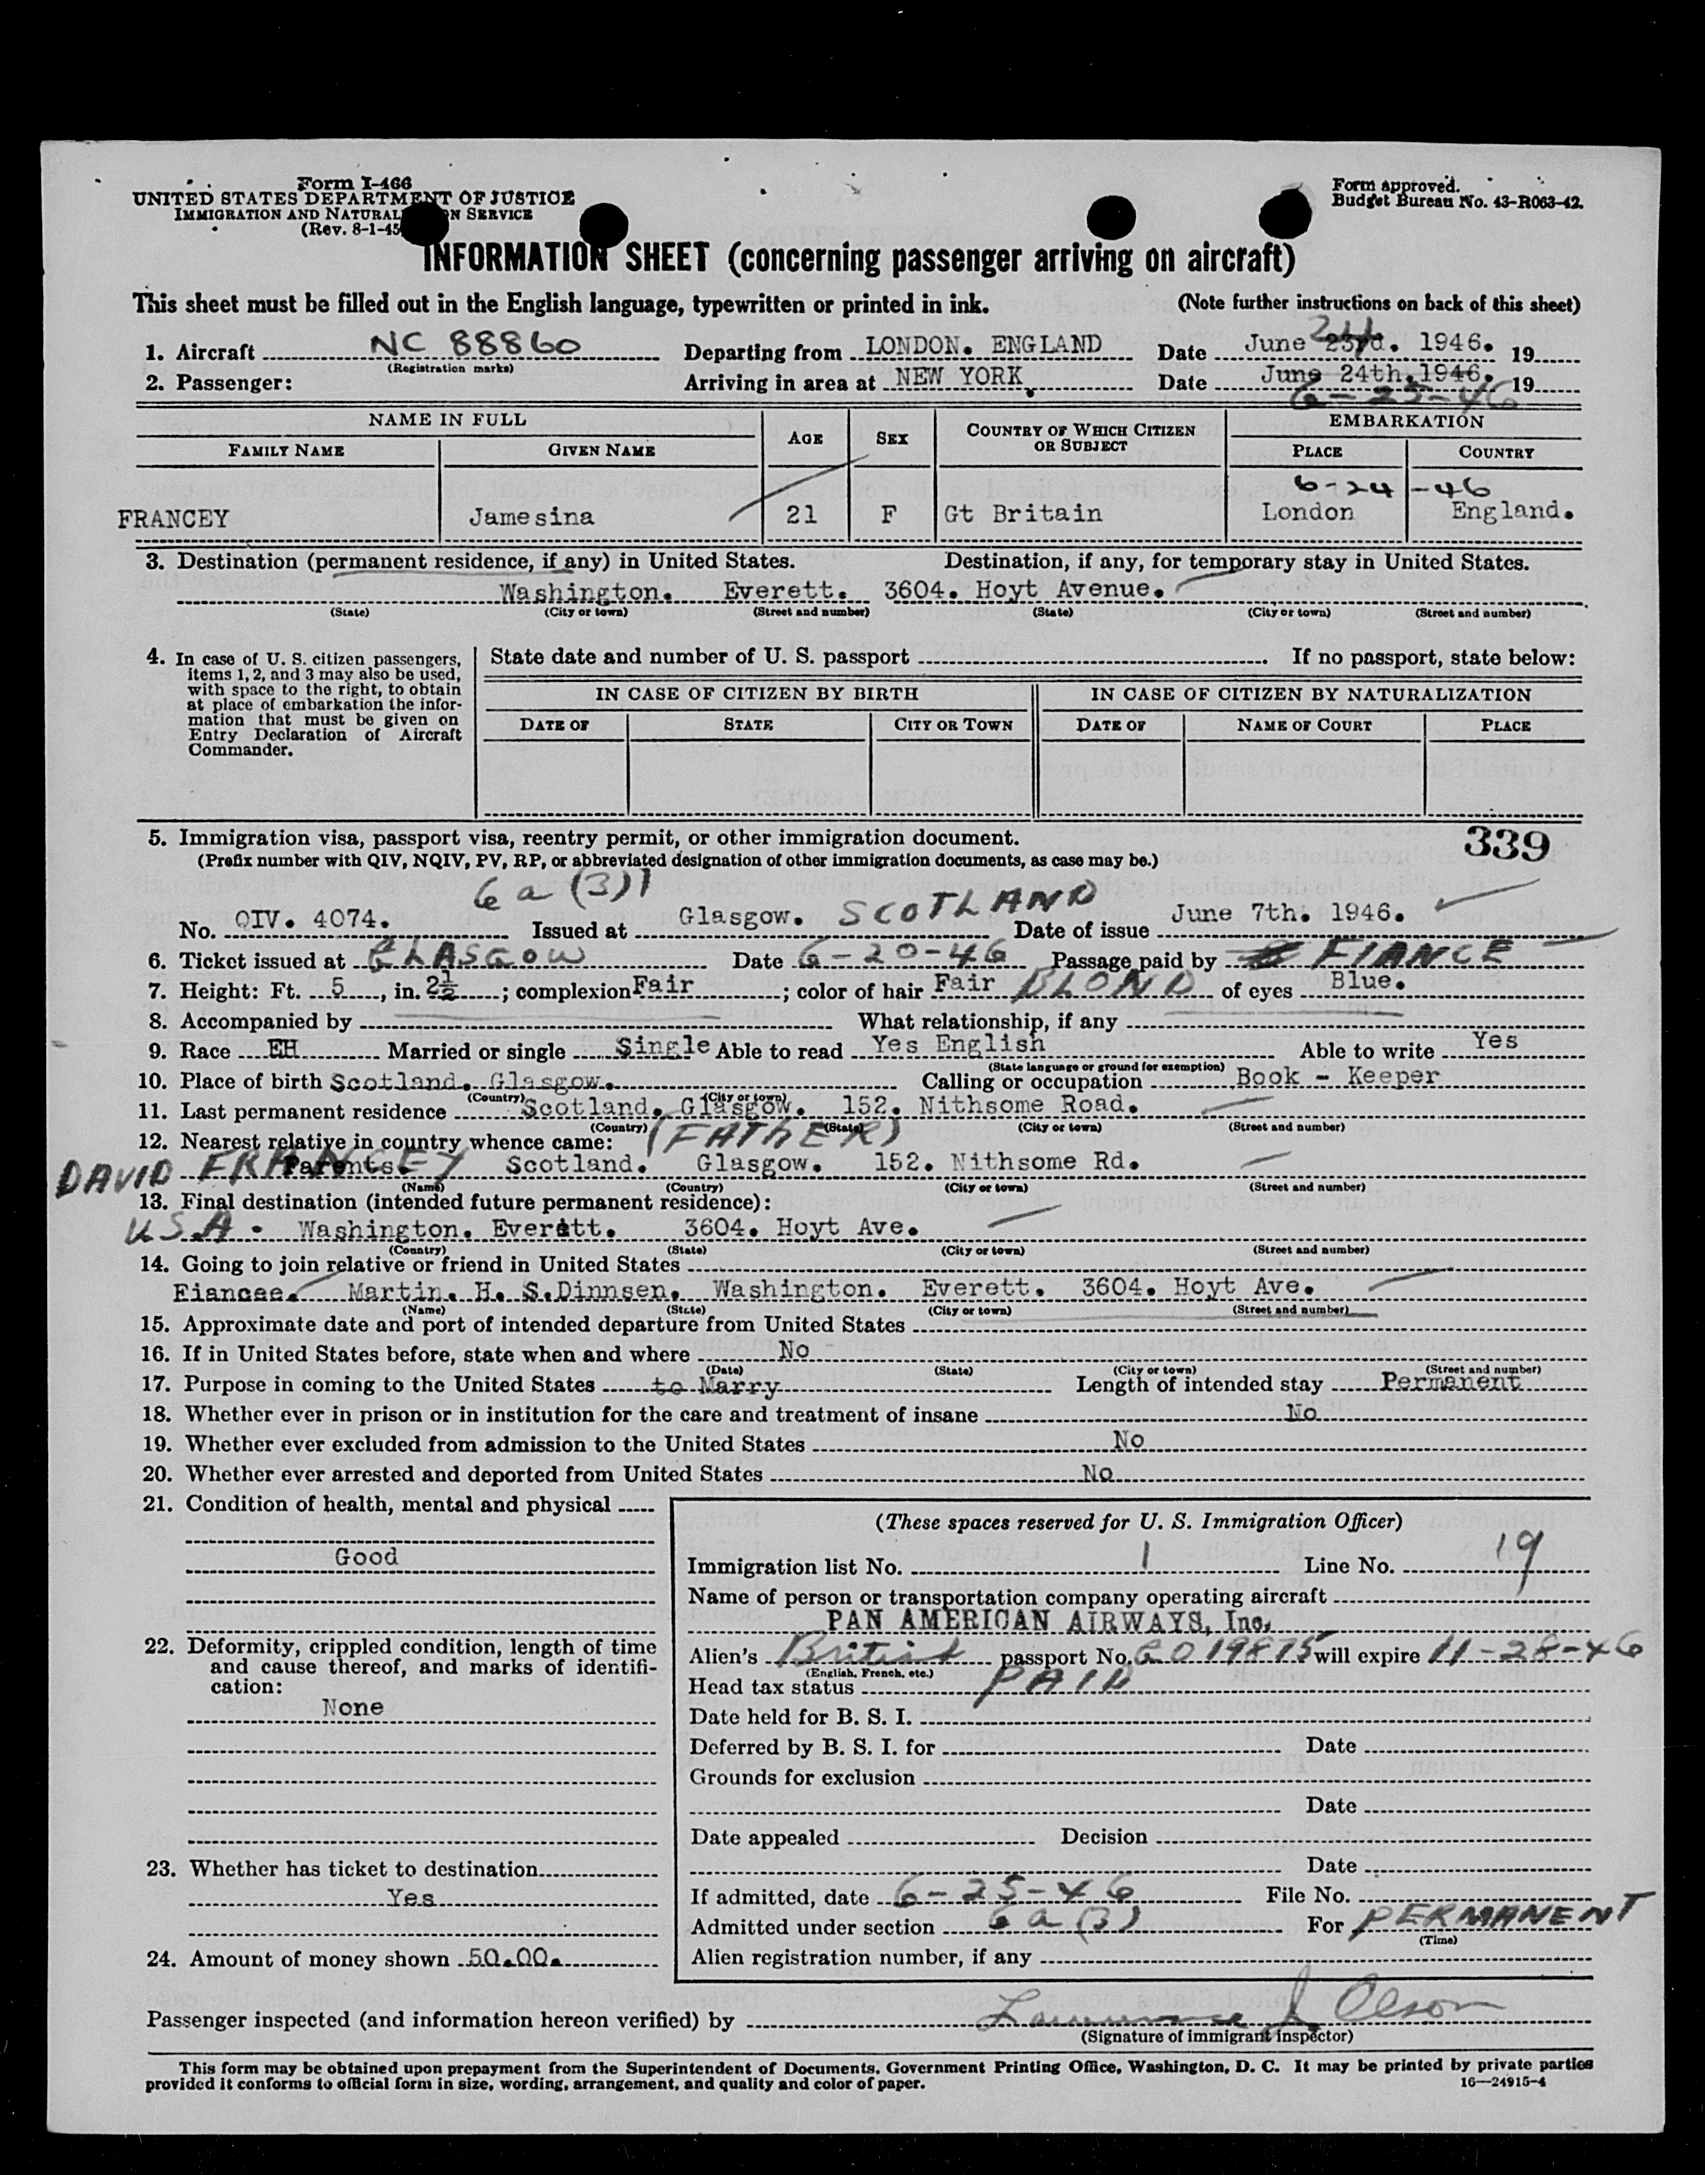 Form I-466
UNITED STATES DEPARTMENT OF JUSTICE
IMMIGRATION AND NATURAL N SERVICE
(Rev. 8-1-45
Form approved.
Budget Bureau No. 43-R063-42.
INFORMATION SHEET (concerning passenger arriving on aircraft)
This sheet must be filled out in the English language, typewritten or printed in ink. (Note further instructions on back of this sheet)
1. Aircraft NC 88860 Departing from LONDON. ENGLAND Date June 23rd. 24 1946. 19
(Registration marks)
2. Passenger: Arriving in area at NEW YORK. Date June 24th.1946. 19
6-25-46
NAME IN FULL AGE SEX COUNTRY OF WHICH CITIZEN OR SUBJECT EMBARKATION
FAMILY NAME GIVEN NAME PLACE COUNTRY
6-24-46
FRANCEY Jamesina 21 F Gt Britain London England.
3. Destination (permanent residence, if any) in United States. Destination, if any, for temporary stay in United States.
Washington. Everett. 3604. Hoyt Avenue.
(State) (City or town) (Street and number) (State) (City or town) (Street and number)
4. In case of U. S. citizen passengers, items 1, 2, and 3 may also be used, with space to the right, to obtain at place of embarkation the information that must be given on Entry Declaration of Aircraft Commander.
State date and number of U. S. passport If no passport, state below:
IN CASE OF CITIZEN BY BIRTH IN CASE OF CITIZEN BY NATURALIZATION
DATE OF STATE CITY OR TOWN DATE OF NAME OF COURT PLACE
5. Immigration visa, passport visa, reentry permit, or other immigration document. 339
(Prefix number with QIV, NQIV, PV, RP, or abbreviated designation of other immigration documents, as case may be.)
6a(3)1
No. QIV. 4074. Issued at Glasgow. SCOTLAND Date of issue June 7th. 1946.
6. Ticket issued at GLASGOW Date 6-20-46 Passage paid by FIANCE
7. Height: Ft. 5, in. 2½; complexion Fair; color of hair Fair BLOND of eyes Blue.
8. Accompanied by What relationship, if any
9. Race EH Married or single Single Able to read Yes English Able to write Yes
(State language or ground for exemption)
10. Place of birth Scotland. Glasgow. Calling or occupation Book - Keeper
(Country) (City or town)
11. Last permanent residence Scotland. Glasgow. 152. Nithsome Road.
(Country) (State) (City or town) (Street and number)
12. Nearest relative in country whence came: (FATHER)
DAVID FRANCEY Parents. Scotland. Glasgow. 152. Nithsome Rd.
(Name) (Country) (City or town) (Street and number)
13. Final destination (intended future permanent residence):
USA. Washington. Everett. 3604. Hoyt Ave.
(Country) (State) (City or town) (Street and number)
14. Going to join relative or friend in United States
Fiancee. Martin. H. S.Dinnsen. Washington. Everett. 3604. Hoyt Ave.
(Name) (State) (City or town) (Street and number)
15. Approximate date and port of intended departure from United States
16. If in United States before, state when and where No
(Date) (State) (City or town) (Street and number)
17. Purpose in coming to the United States to Marry Length of intended stay Permanent
18. Whether ever in prison or in institution for the care and treatment of insane No
19. Whether ever excluded from admission to the United States No
20. Whether ever arrested and deported from United States No
21. Condition of health, mental and physical
Good
22. Deformity, crippled condition, length of time
and cause thereof, and marks of identification:
None
23. Whether has ticket to destination
Yes
24. Amount of money shown 50.00.
(These spaces reserved for U. S. Immigration Officer)
Immigration list No. 1 Line No. 19
Name of person or transportation company operating aircraft
PAN AMERICAN AIRWAYS, Inc.
Alien's British passport No. C019875 will expire 11-28-46
(English, French, etc.)
Head tax status PAID
Date held for B. S. I.
Deferred by B. S. I. for Date
Grounds for exclusion
Date
Date appealed Decision
Date
If admitted, date 6-25-46 File No.
Admitted under section 6a(3) For PERMANENT
(Time)
Alien registration number, if any
Passenger inspected (and information hereon verified) by Lawrence J Olson
(Signature of immigrant inspector)
This form may be obtained upon prepayment from the Superintendent of Documents, Government Printing Office, Washington, D. C. It may be printed by private parties
provided it conforms to official form in size, wording, arrangement, and quality and color of paper. 16—24915-4